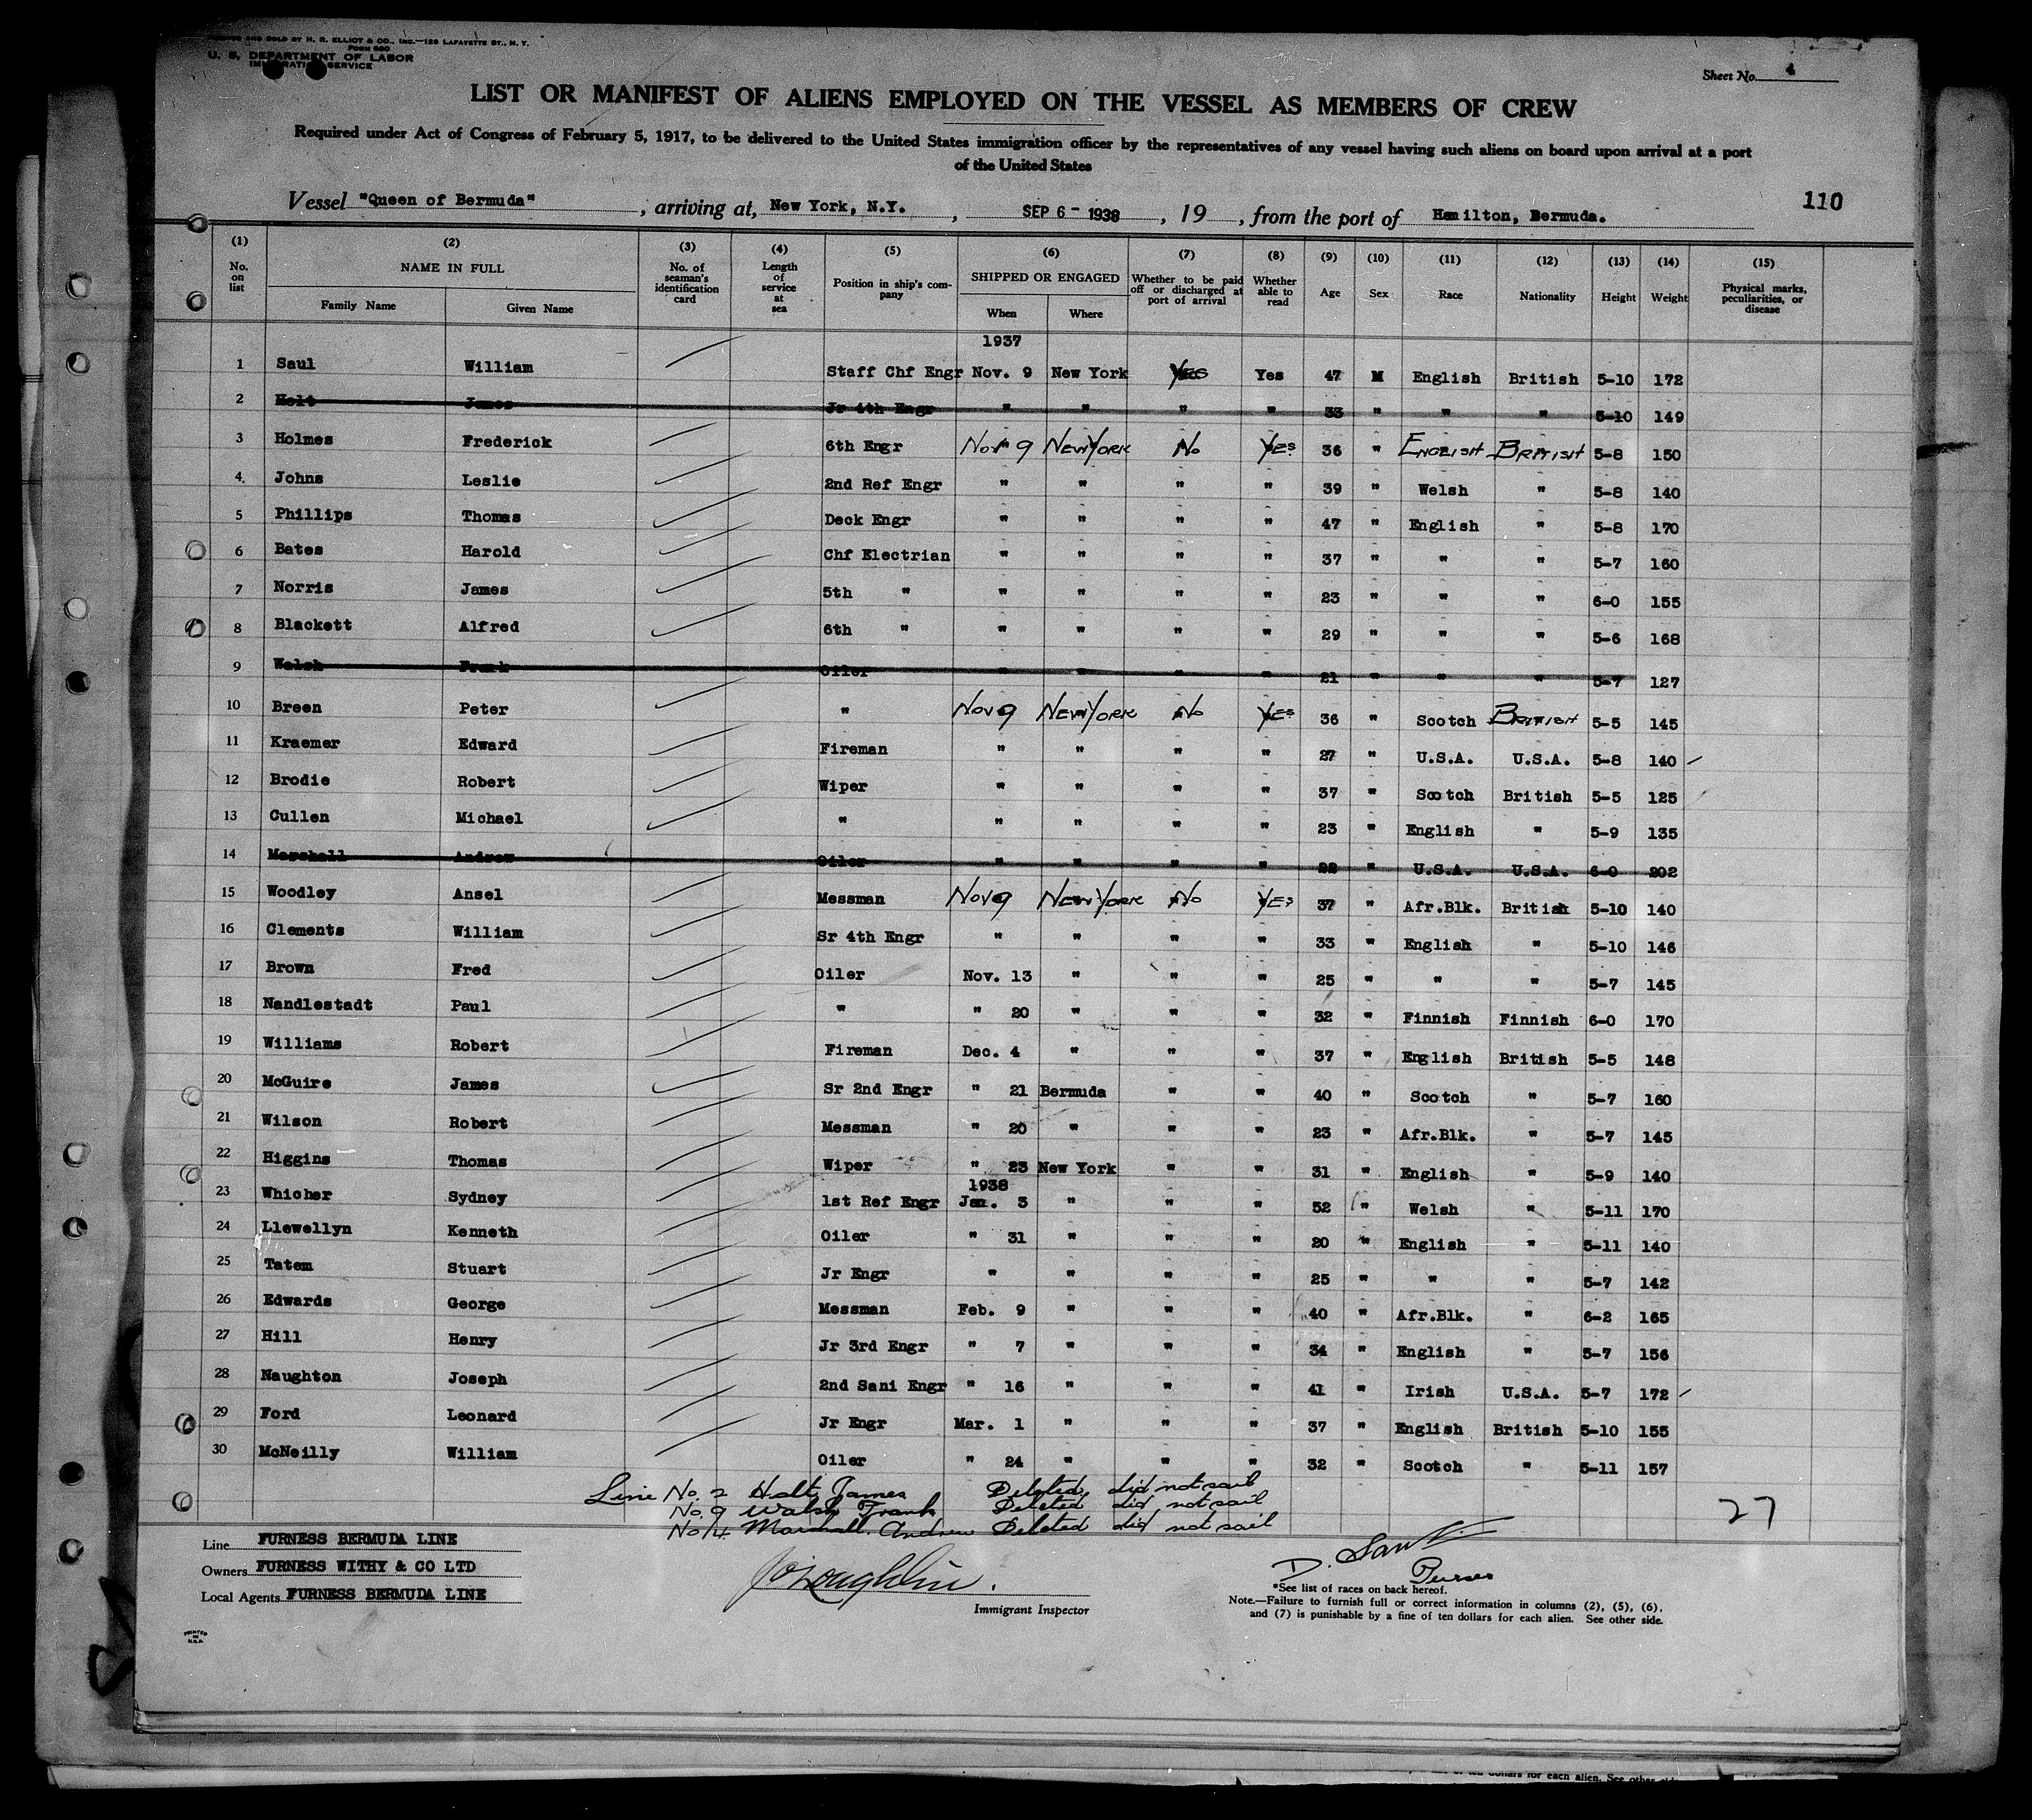 PRINTED AND SOLD BY H. R. ELLIOT & CO., INC.—129 LAFAYETTE ST., N. Y.
FORM 680
U. S. DEPARTMENT OF LABOR
IMMIGRATION SERVICE
Sheet No. 4
LIST OR MANIFEST OF ALIENS EMPLOYED ON THE VESSEL AS MEMBERS OF CREW
Required under Act of Congress of February 5, 1917, to be delivered to the United States immigration officer by the representatives of any vessel having such aliens on board upon arrival at a port
of the United States
110
Vessel "Queen of Bermuda", arriving at, New York, N.Y., SEP 6 - 1938, 19, from the port of Hamilton, Bermuda.
(1) (2) (3) (4) (5) (6) (7) (8) (9) (10) (11) (12) (13) (14) (15)
No. on list NAME IN FULL Family Name Given Name No. of seaman's identification card Length of service at sea Position in ship's company SHIPPED OR ENGAGED When Where Whether to be paid off or discharged at port of arrival Whether able to read Age Sex Race Nationality Height Weight Physical marks, peculiarities, or disease
1937
1 Saul William Staff Chf Engr Nov. 9 New York Yes Yes 47 M English British 5-10 172
2 Holt James Jr 4th Engr " " " " 33 " " " 5-10 149
3 Holmes Frederick 6th Engr Nov 9 New York No Yes 36 " English British 5-8 150
4 Johns Leslie 2nd Ref Engr " " " " 39 " Welsh " 5-8 140
5 Phillips Thomas Deck Engr " " " " 47 " English " 5-8 170
6 Bates Harold Chf Electrian " " " " 37 " " " 5-7 160
7 Norris James 5th " " " " " 23 " " " 6-0 155
8 Blackett Alfred 6th " " " " " 29 " " " 5-6 168
9 Walsh Frank Oiler " " " " 21 " " " 5-7 127
10 Breen Peter " Nov 9 New York No Yes 36 " Scotch British 5-5 145
11 Kraemer Edward Fireman " " " " 27 " U.S.A. U.S.A. 5-8 140
12 Brodie Robert Wiper " " " " 37 " Scotch British 5-5 125
13 Cullen Michael " " " " " 23 " English " 5-9 135
14 Marshall Andrew Oiler " " " " 22 " U.S.A. U.S.A. 6-0 202
15 Woodley Ansel Messman Nov 9 New York No Yes 37 " Afr.Blk. British 5-10 140
16 Clements William Sr 4th Engr " " " " 33 " English " 5-10 146
17 Brown Fred Oiler Nov. 13 " " " 25 " " " 5-7 145
18 Nandlestadt Paul " " 20 " " " 32 " Finnish Finnish 6-0 170
19 Williams Robert Fireman Dec. 4 " " " 37 " English British 5-5 148
20 McGuire James Sr 2nd Engr " 21 Bermuda " " 40 " Scotch " 5-7 160
21 Wilson Robert Messman " 20 " " " 23 " Afr.Blk. " 5-7 145
22 Higgins Thomas Wiper " 23 New York " " 31 " English " 5-9 140
1938
23 Whicher Sydney 1st Ref Engr Jan. 3 " " " 52 " Welsh " 5-11 170
24 Llewellyn Kenneth Oiler " 31 " " " 20 " English " 5-11 140
25 Tatem Stuart Jr Engr " " " " 25 " " " 5-7 142
26 Edwards George Messman Feb. 9 " " " 40 " Afr.Blk. " 6-2 165
27 Hill Henry Jr 3rd Engr " 7 " " " 34 " English " 5-7 156
28 Naughton Joseph 2nd Sani Engr " 16 " " " 41 " Irish U.S.A. 5-7 172
29 Ford Leonard Jr Engr Mar. 1 " " " 37 " English British 5-10 155
30 McNeilly William Oiler " 24 " " " 32 " Scotch " 5-11 157
Line No. 2 Holt, James Deleted, did not sail
No. 9 Walsh, Frank Deleted did not sail
No 14 Marshall, Andrew Deleted did not sail
27
Line FURNESS BERMUDA LINE
Owners FURNESS WITHY & CO LTD
Local Agents FURNESS BERMUDA LINE
Immigrant Inspector
Purser
*See list of races on back hereof.
Note.—Failure to furnish full or correct information in columns (2), (5), (6),
and (7) is punishable by a fine of ten dollars for each alien. See other side.
PRINTED IN U.S.A.